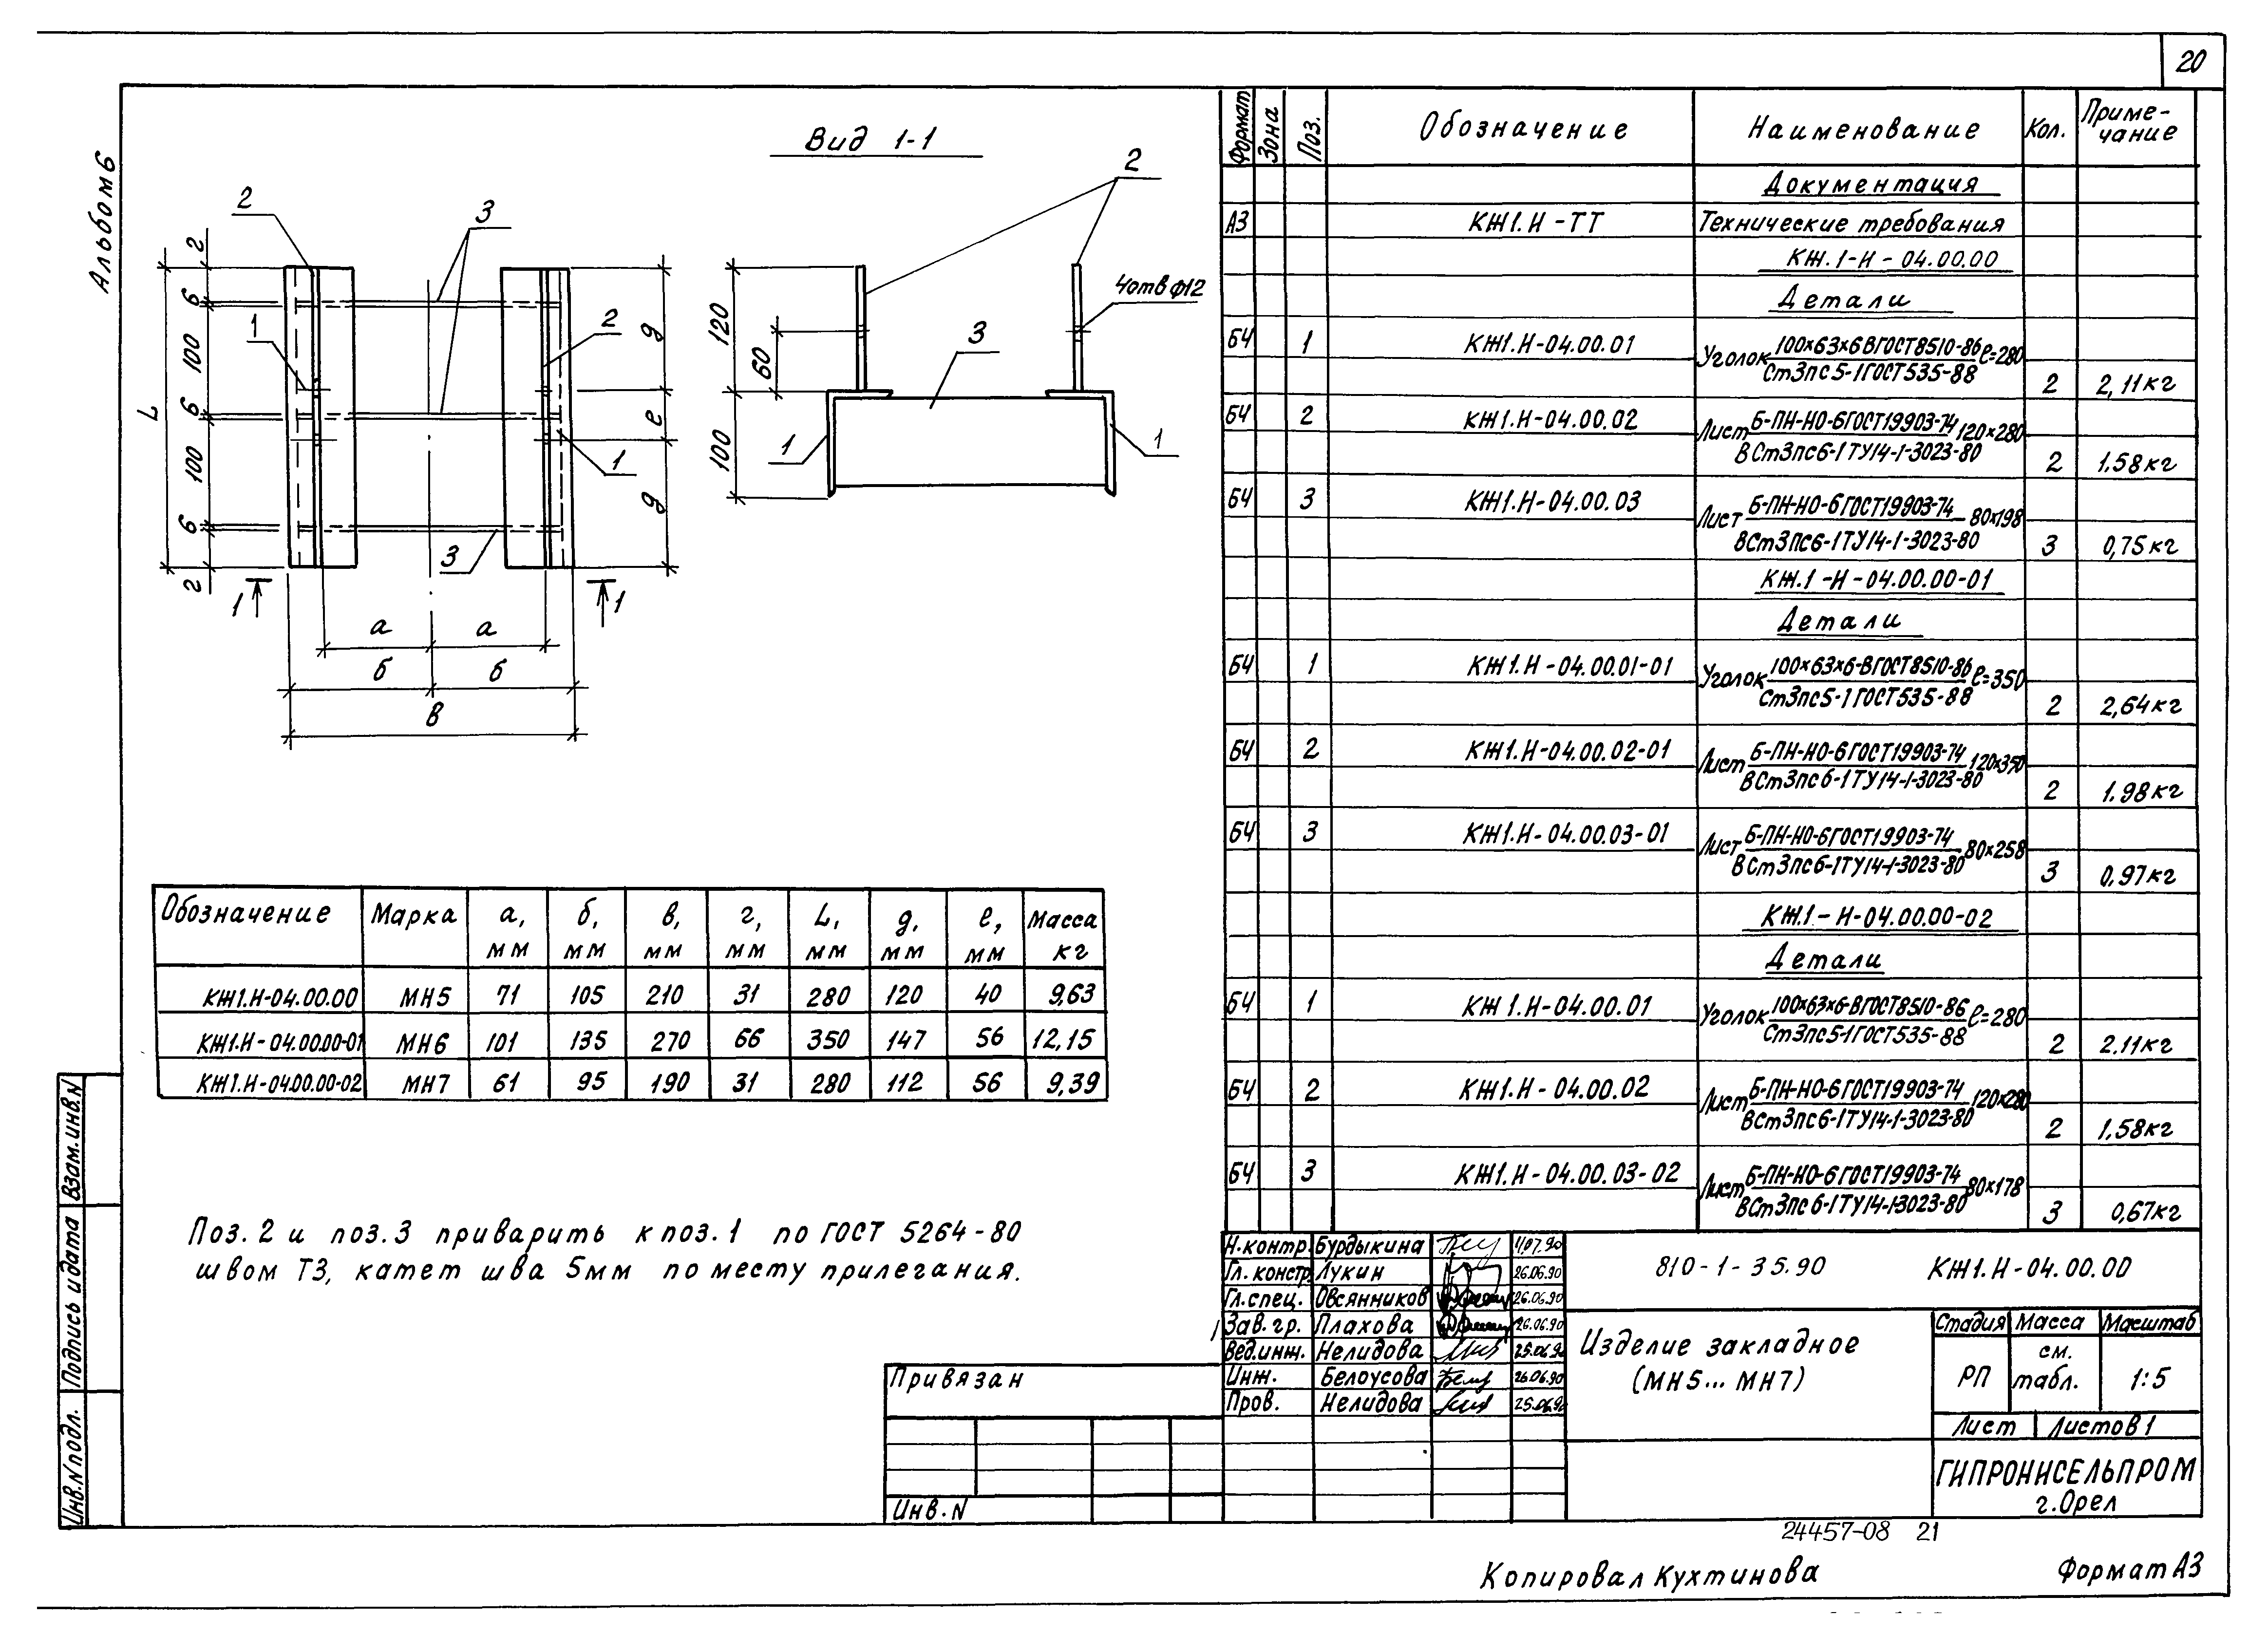 20
Альбом 6
Вид 1-1
2
3
2
1
1
3
г
6
100
6
100
6
г
L
g
е
g
1
1
а
а
б
б
в
2
4отв ф12
3
1
1
120
60
100
Обозначение Марка а, мм б, мм в, мм г, мм L, мм g, мм е, мм Масса кг
КЖ1.И-04.00.00 МН5 71 105 210 31 280 120 40 9,63
КЖ1.И-04.00.00-01 МН6 101 135 270 66 350 147 56 12,15
КЖ1.И-04.00.00-02 МН7 61 95 190 31 280 112 56 9,39
Поз. 2 и поз. 3 приварить к поз. 1 по ГОСТ 5264-80
швом Т3, катет шва 5мм по месту прилегания.
Формат Зона Поз. Обозначение Наименование Кол. Приме-чание
Документация
А3 КЖ1.И-ТТ Технические требования
КЖ.1-И-04.00.00
Детали
БЧ 1 КЖ1.И-04.00.01 Уголок 100×63×6 ВГОСТ8510-86 ℓ=280
Ст3пс5-1ГОСТ535-88 2 2,11кг
БЧ 2 КЖ1.И-04.00.02 Лист Б-ПН-НО-6ГОСТ19903-74 120×280
ВСт3пс6-1ТУ14-1-3023-80 2 1.58кг
БЧ 3 КЖ1.И-04.00.03 Лист Б-ПН-НО-6ГОСТ19903-74 80×198
ВСт3пс6-1ТУ14-1-3023-80 3 0,75кг
КЖ.1-И-04.00.00-01
Детали
БЧ 1 КЖ1.И-04.00.01-01 Уголок 100×63×6-ВГОСТ8510-86 ℓ=350
Ст3пс5-1ГОСТ535-88 2 2,64кг
БЧ 2 КЖ1.И-04.00.02-01 Лист Б-ПН-НО-6ГОСТ19903-74 120×350
ВСт3пс6-1ТУ14-1-3023-80 2 1.98кг
БЧ 3 КЖ1.И-04.00.03-01 Лист Б-ПН-НО-6ГОСТ19903-74 80×258
ВСт3пс6-1ТУ14-1-3023-80 3 0,97кг
КЖ.1-И-04.00.00-02
Детали
БЧ 1 КЖ1.И-04.00.01 Уголок 100×63×6-ВГОСТ8510-86 ℓ=280
Ст3пс5-1ГОСТ535-88 2 2.11кг
БЧ 2 КЖ1.И-04.00.02 Лист Б-ПН-НО-6ГОСТ19903-74 120×280
ВСт3пс6-1ТУ14-1-3023-80 2 1,58кг
БЧ 3 КЖ1.И-04.00.03-02 Лист Б-ПН-НО-6ГОСТ19903-74 80×178
ВСт3пс6-1ТУ14-1-3023-80 3 0,67кг
Н.контр. Бурдыкина
Гл. констр. Лукин 26.06.90
Гл.спец. Овсянников 26.06.90
Зав.гр. Плахова 26.06.90
Вед.инж. Нелидова 25.06.90
Инж. Белоусова 26.06.90
Пров. Нелидова 25.06.90
810-1-35.90 КЖ1.И-04.00.00
Изделие закладное
(МН5...МН7)
Стадия Масса Масштаб
РП см. табл. 1:5
Лист Листов 1
ГИПРОНИСЕЛЬПРОМ
г.Орел
Привязан
Инв.N
Инв.N подл. Подпись и дата Взам.инв.N
24457-08 21
Копировал Кухтинова Формат А3